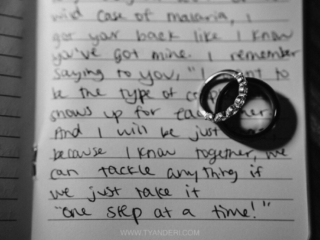 mild case of malaria, I
got your back like I know
you've got mine. I remember
saying to you, "I want to
be the type of
shows up for each other
And I will be just
because I know together, we
can tackle anything if
we just take it
"one step at a time!"
WWW.TYANDERI.COM